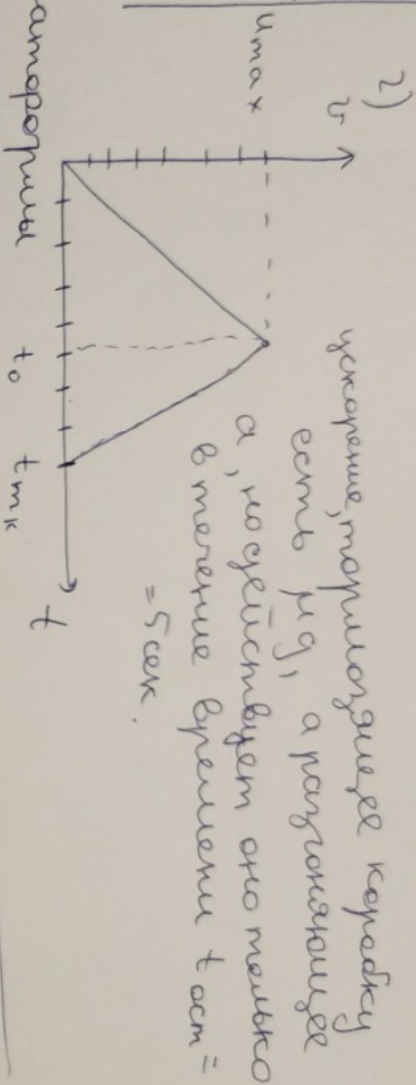 2)
v
u max
t₀
t тк
t
ускорение, тормозящее коробку
есть μg, а разгоняющее
a, но действует оно только
в течение времени t ост =
= 5 сек.
атформы